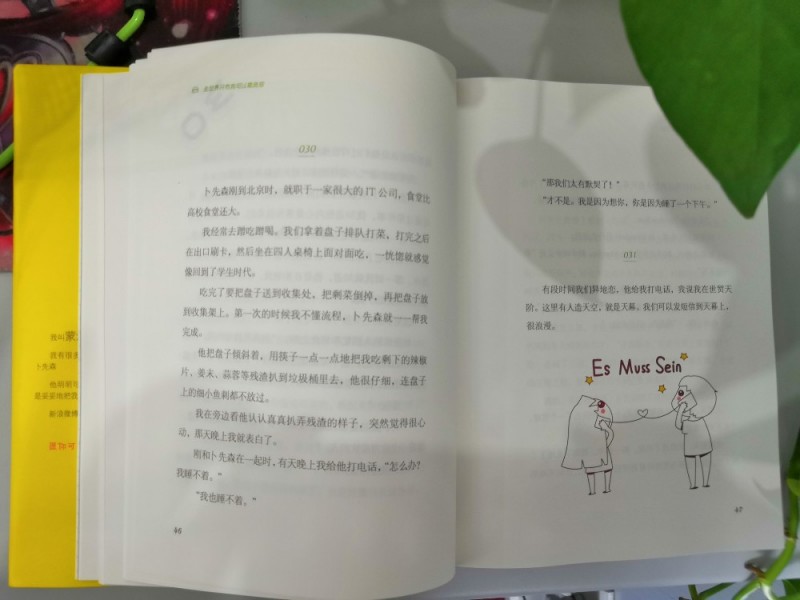 030
卜先森刚到北京时，就职于一家很大的 IT 公司，食堂比
高校食堂还大。
我经常去蹭吃蹭喝。我们拿着盘子排队打菜，打完之后
在出口刷卡，然后坐在四人桌椅上面对面吃，一恍惚就感觉
像回到了学生时代。
吃完了要把盘子送到收集处，把剩菜倒掉，再把盘子放
到收集架上。第一次的时候我不懂流程，卜先森就一一帮我
完成。
他把盘子倾斜着，用筷子一点一点地把我吃剩下的辣椒
片、姜末、蒜蓉等残渣扒到垃圾桶里去，他很仔细，连盘子
上的细小鱼刺都不放过。
我在旁边看他认认真真扒弄残渣的样子，突然觉得很心
动，那天晚上我就表白了。
刚和卜先森在一起时，有天晚上我给他打电话，“怎么办？
我睡不着。”
“我也睡不着。”
46
“那我们太有默契了！”
“才不是。我是因为想你，你是因为睡了一个下午。”
031
有段时间我们异地恋，他给我打电话，我说我在世贸天
阶。这里有人造天空，就是天幕。我们可以发短信到天幕上，
很浪漫。
Es Muss Sein
47
我叫蒙
我有很多
卜先森
是妥妥地把我
新浪微博